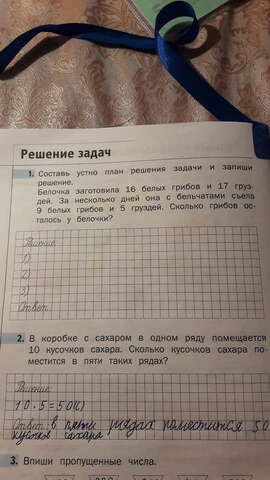 Решение задач
1. Составь устно план решения задачи и запиши
решение.
Белочка заготовила 16 белых грибов и 17 груз-
дей. За несколько дней она с бельчатами съела
9 белых грибов и 5 груздей. Сколько грибов ос-
талось у белочки?
Решение
1)
2)
3)
Ответ
2. В коробке с сахаром в одном ряду помещается
10 кусочков сахара. Сколько кусочков сахара по-
местится в пяти таких рядах?
Решение
10·5=50(
Ответ: в пяти рядах поместится 50
кусков сахара
3. Впиши пропущенные числа.